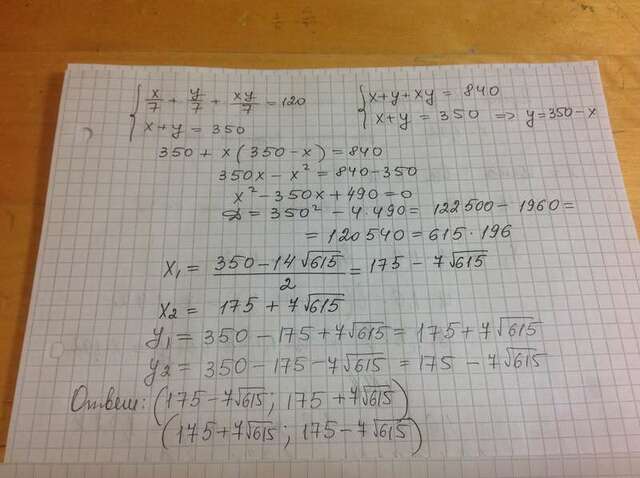 { x/7 + y/7 + xy/7 = 120
x + y = 350
{ x+y+xy = 840
x+y = 350 => y=350-x
350 + x(350-x) = 840
350x - x² = 840-350
x² - 350x + 490 = 0
D = 350² - 4·490 = 122500 - 1960 =
= 120540 = 615·196
x₁ = (350-14√615)/2 = 175 - 7√615
x₂ = 175 + 7√615
y₁ = 350 - 175 + 7√615 = 175 + 7√615
y₂ = 350 - 175 - 7√615 = 175 - 7√615
Ответ: (175-7√615; 175+7√615)
(175+7√615; 175-7√615)